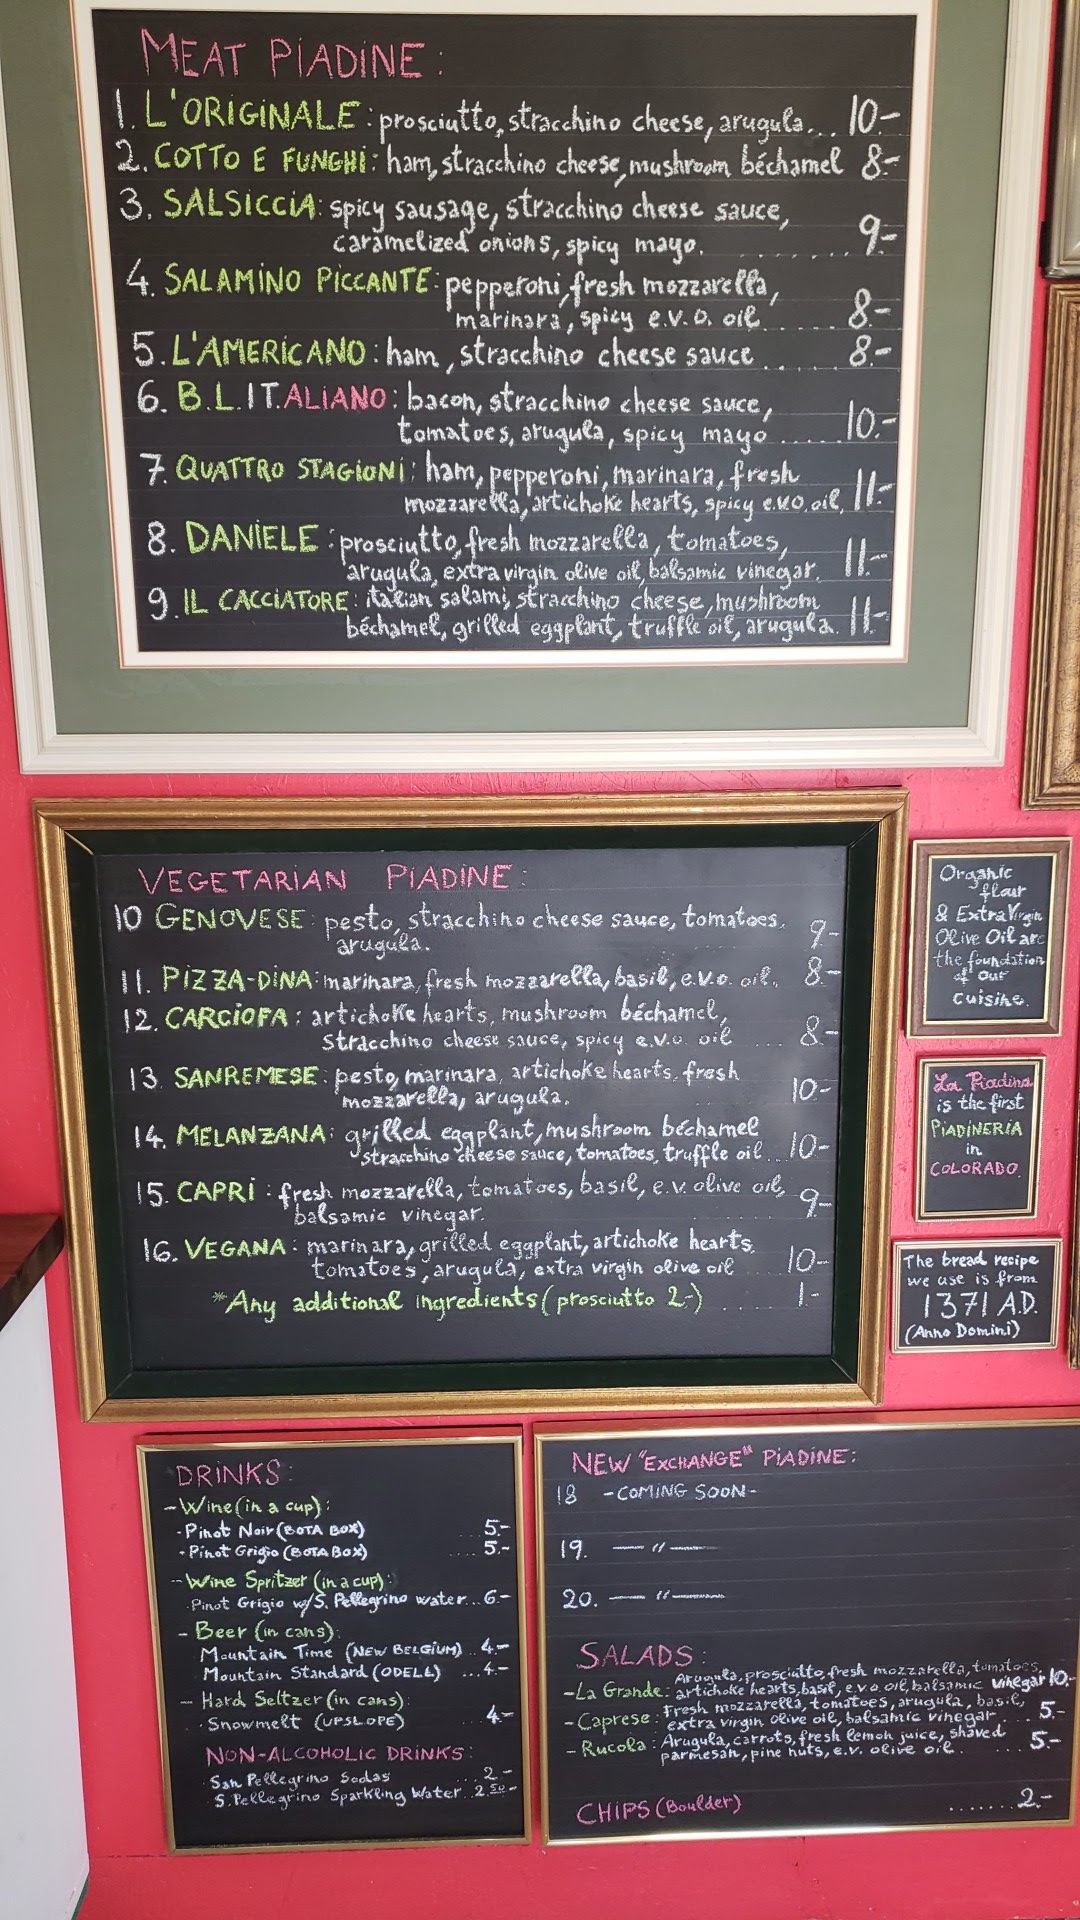 MEAT PIADINE:
1. L'ORIGINALE: prosciutto, stracchino cheese, arugula... 10.-
2. COTTO E FUNGHI: ham, stracchino cheese, mushroom béchamel 8.-
3. SALSICCIA: spicy sausage, stracchino cheese sauce,
caramelized onions, spicy mayo. ....... 9.-
4. SALAMINO PICCANTE: pepperoni, fresh mozzarella,
marinara, spicy e.v.o. oil..... 8.-
5. L'AMERICANO: ham, stracchino cheese sauce ...... 8.-
6. B.L.IT.ALIANO: bacon, stracchino cheese sauce,
tomatoes, arugula, spicy mayo ..... 10.-
7. QUATTRO STAGIONI: ham, pepperoni, marinara, fresh
mozzarella, artichoke hearts, spicy e.v.o. oil. 11.-
8. DANIELE: prosciutto, fresh mozzarella, tomatoes,
arugula, extra virgin olive oil, balsamic vinegar. 11.-
9. IL CACCIATORE: italian salami, stracchino cheese, mushroom
béchamel, grilled eggplant, truffle oil, arugula. 11.-
VEGETARIAN PIADINE:
10 GENOVESE: pesto, stracchino cheese sauce, tomatoes,
arugula. 9.-
11. PIZZA-DINA: marinara, fresh mozzarella, basil, e.v.o. oil. 8.-
12. CARCIOFA: artichoke hearts, mushroom béchamel,
stracchino cheese sauce, spicy e.v.o. oil .... 8.-
13. SANREMESE: pesto, marinara, artichoke hearts, fresh
mozzarella, arugula. 10.-
14. MELANZANA: grilled eggplant, mushroom béchamel
stracchino cheese sauce, tomatoes, truffle oil... 10.-
15. CAPRI: fresh mozzarella, tomatoes, basil, e.v. olive oil,
balsamic vinegar. 9.-
16. VEGANA: marinara, grilled eggplant, artichoke hearts,
tomatoes, arugula, extra virgin olive oil 10.-
*Any additional ingredients (prosciutto 2.-) ..... 1.-
Organic
flour
& Extra Virgin
Olive Oil are
the foundation
of our
cuisine.
La Piadina
is the first
PIADINERIA
in
COLORADO
The bread recipe
we use is from
1371 A.D.
(Anno Domini)
DRINKS:
- Wine (in a cup):
- Pinot Noir (BOTA BOX) .... 5.-
- Pinot Grigio (BOTA BOX) .... 5.-
- Wine Spritzer (in a cup):
Pinot Grigio w/S. Pellegrino water... 6.-
- Beer (in cans):
Mountain Time (NEW BELGIUM) .. 4.-
Mountain Standard (ODELL) ... 4.-
- Hard Seltzer (in cans):
Snowmelt (UPSLOPE) 4.-
NON-ALCOHOLIC DRINKS:
San Pellegrino Sodas .... 2.-
S. Pellegrino Sparkling Water .. 2.50-
NEW "EXCHANGE" PIADINE:
18 -COMING SOON-
19. — " —
20. — " —
SALADS:
- La Grande: Arugula, prosciutto, fresh mozzarella, tomatoes,
artichoke hearts, basil, e.v.o. oil, balsamic vinegar 10.-
- Caprese: Fresh mozzarella, tomatoes, arugula, basil,
extra virgin olive oil, balsamic vinegar .... 5.-
- Rucola: Arugula, carrots, fresh lemon juice, shaved
parmesan, pine nuts, e.v. olive oil. 5.-
CHIPS (Boulder) ....... 2.-